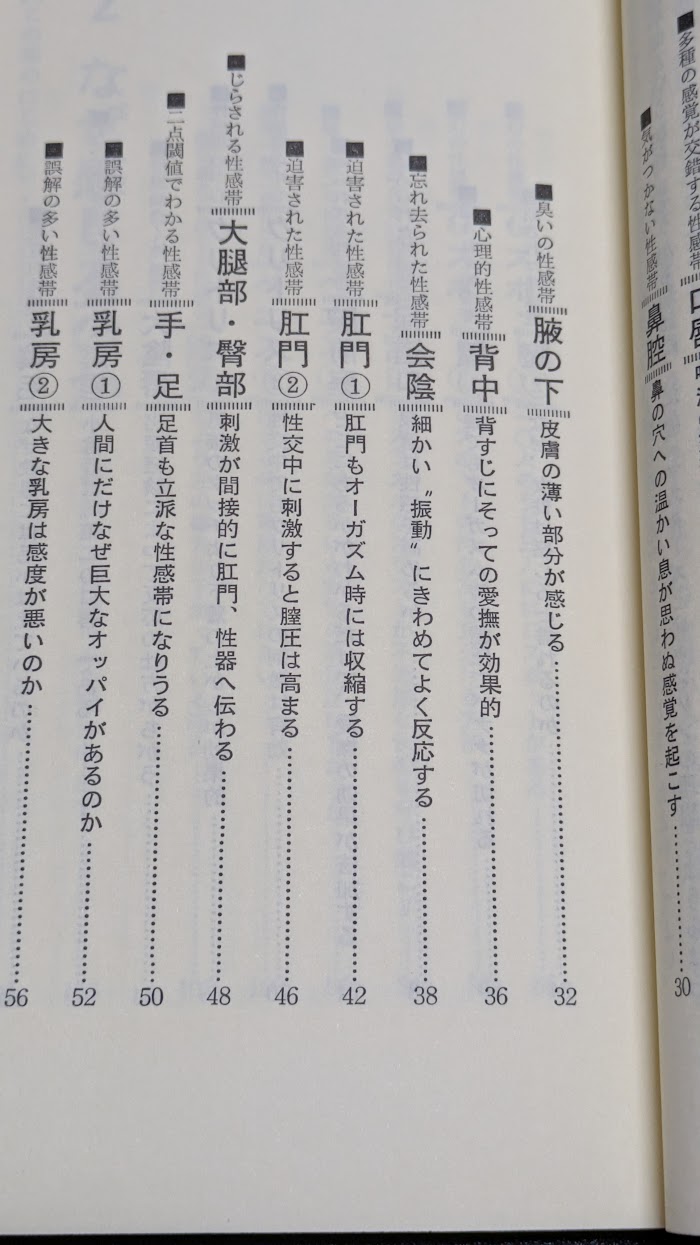 ■多種の感覚が交錯する性感帯
■気がつかない性感帯 鼻腔 鼻の穴への温かい息が思わぬ感覚を起こす……………30
■臭いの性感帯 腋の下 皮膚の薄い部分が感じる……………32
■心理的性感帯 背中 背すじにそっての愛撫が効果的……………36
■忘れ去られた性感帯 会陰 細かい〝振動〟にきわめてよく反応する……………38
■迫害された性感帯 肛門① 肛門もオーガズム時には収縮する……………42
■迫害された性感帯 肛門② 性交中に刺激すると膣圧は高まる……………46
■じらされる性感帯 大腿部・臀部 刺激が間接的に肛門、性器へ伝わる……………48
■二点閾値でわかる性感帯 手・足 足首も立派な性感帯になりうる……………50
■誤解の多い性感帯 乳房① 人間にだけなぜ巨大なオッパイがあるのか……………52
■誤解の多い性感帯 乳房② 大きな乳房は感度が悪いのか……………56